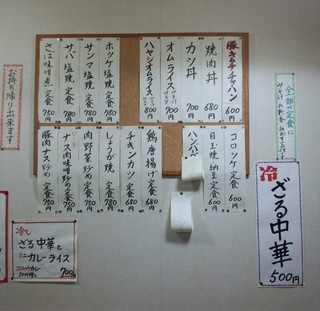 豚キムチチャハン 600円
焼肉丼 680円
カツ丼 700円
オムライス 700円
ハヤシオムライス 800円
ホッケ塩焼定食 780円
サンマ塩焼定食 780円
サバ塩焼定食 780円
さば味噌煮定食 750円
コロッケ定食 600円
目玉焼納豆定食 600円
ハンバ
鶏唐揚げ定食 680円
チキンカツ定食 680円
しょうが焼定食 780円
肉野菜炒め定食 750円
ナス肉味噌炒め定食 750円
豚肉ナス炒め定食 750円
お持ち帰り出来ます
全部の定食に
冷 ざる中華 500円
冷し
ざる中華と
ミニカレーライス
700円